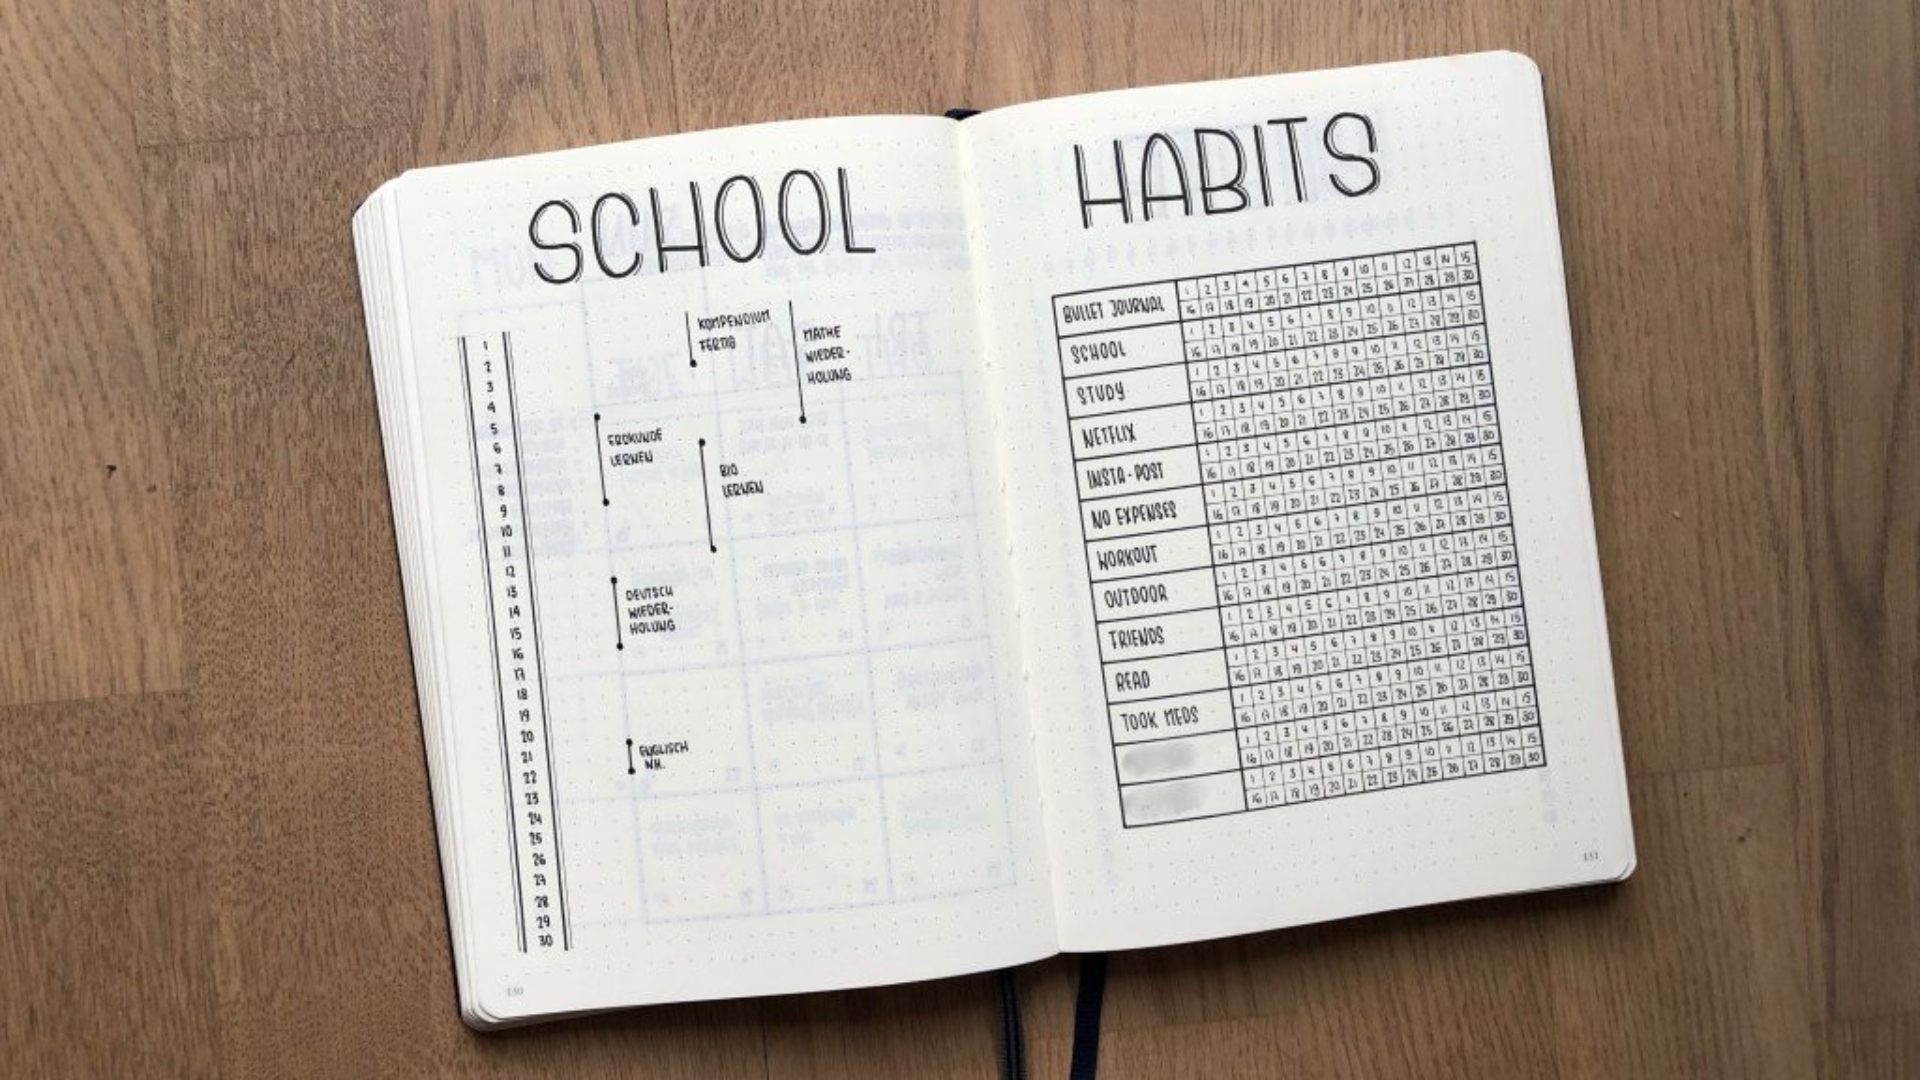 SCHOOL
1
2
3
4
5
6
7
8
9
10
11
12
13
14
15
16
17
18
19
20
21
22
23
24
25
26
27
28
29
30
KOMPENDIUM
FERTIG
MATHE
WIEDER-
HOLUNG
ERDKUNDE
LERNEN
BIO
LERNEN
DEUTSCH
WIEDER-
HOLUNG
ENGLISCH
WH.
150
HABITS
BULLET JOURNAL 1 2 3 4 5 6 7 8 9 10 11 12 13 14 15
16 17 18 19 20 21 22 23 24 25 26 27 28 29 30
SCHOOL 1 2 3 4 5 6 7 8 9 10 11 12 13 14 15
16 17 18 19 20 21 22 23 24 25 26 27 28 29 30
STUDY 1 2 3 4 5 6 7 8 9 10 11 12 13 14 15
16 17 18 19 20 21 22 23 24 25 26 27 28 29 30
NETFLIX 1 2 3 4 5 6 7 8 9 10 11 12 13 14 15
16 17 18 19 20 21 22 23 24 25 26 27 28 29 30
INSTA-POST 1 2 3 4 5 6 7 8 9 10 11 12 13 14 15
16 17 18 19 20 21 22 23 24 25 26 27 28 29 30
NO EXPENSES 1 2 3 4 5 6 7 8 9 10 11 12 13 14 15
16 17 18 19 20 21 22 23 24 25 26 27 28 29 30
WORKOUT 1 2 3 4 5 6 7 8 9 10 11 12 13 14 15
16 17 18 19 20 21 22 23 24 25 26 27 28 29 30
OUTDOOR 1 2 3 4 5 6 7 8 9 10 11 12 13 14 15
16 17 18 19 20 21 22 23 24 25 26 27 28 29 30
FRIENDS 1 2 3 4 5 6 7 8 9 10 11 12 13 14 15
16 17 18 19 20 21 22 23 24 25 26 27 28 29 30
READ 1 2 3 4 5 6 7 8 9 10 11 12 13 14 15
16 17 18 19 20 21 22 23 24 25 26 27 28 29 30
TOOK MEDS 1 2 3 4 5 6 7 8 9 10 11 12 13 14 15
16 17 18 19 20 21 22 23 24 25 26 27 28 29 30
1 2 3 4 5 6 7 8 9 10 11 12 13 14 15
16 17 18 19 20 21 22 23 24 25 26 27 28 29 30
1 2 3 4 5 6 7 8 9 10 11 12 13 14 15
16 17 18 19 20 21 22 23 24 25 26 27 28 29 30
151